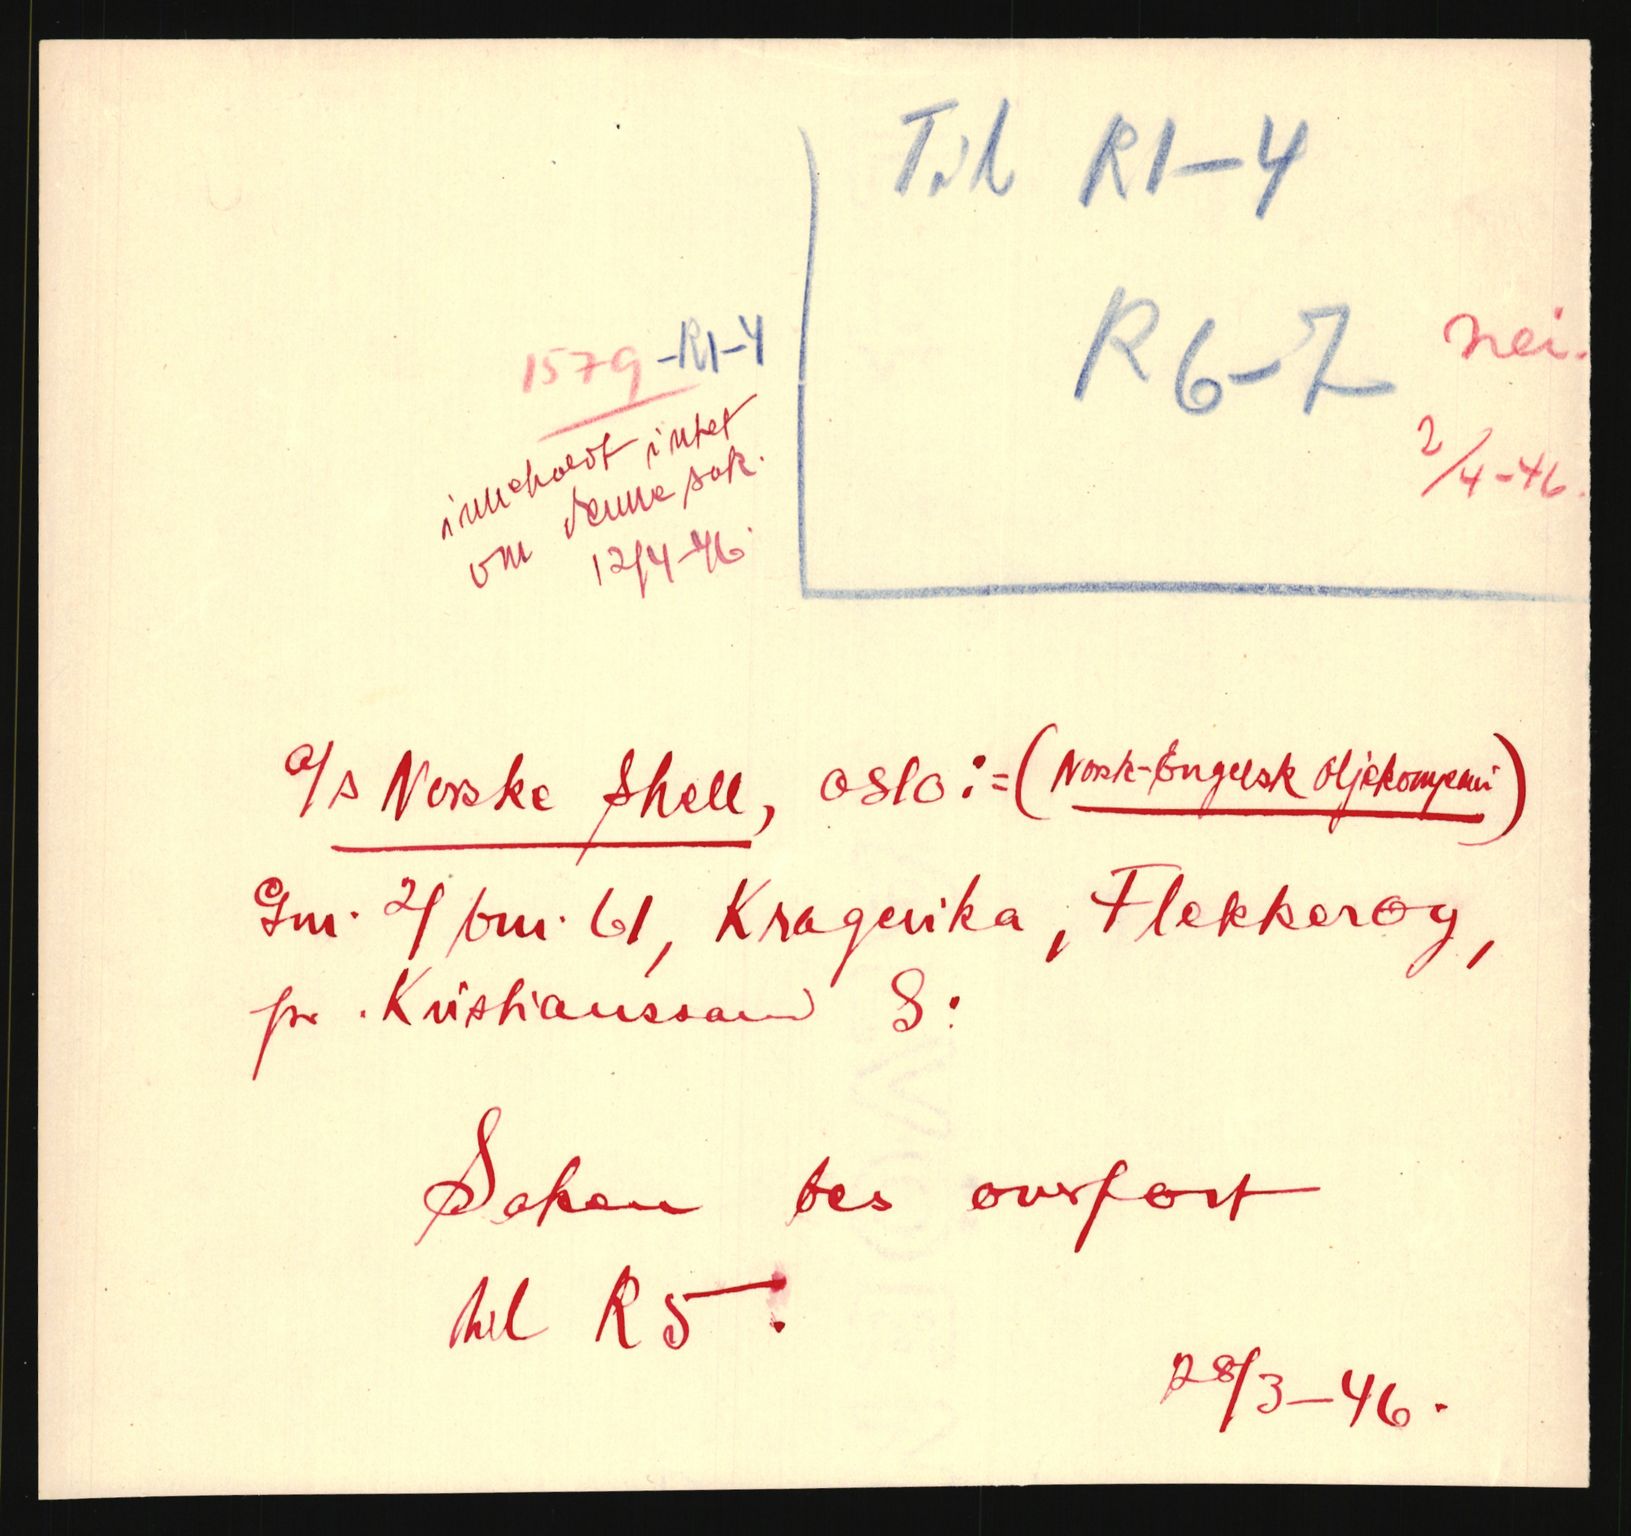 Til R1-4
R6-7 nei.
2/4-46.
1579-R1-4
inneholdt intet
om denne sak.
12/4-46.
a/s Norske Shell, Oslo: = (Norsk-Engelsk Oljekompani)
Gnr. 2/ bnr. 61, Kragevika, Flekkerøy,
pr. Kristianssand S:
Saken bes overført
til R5.
28/3-46.